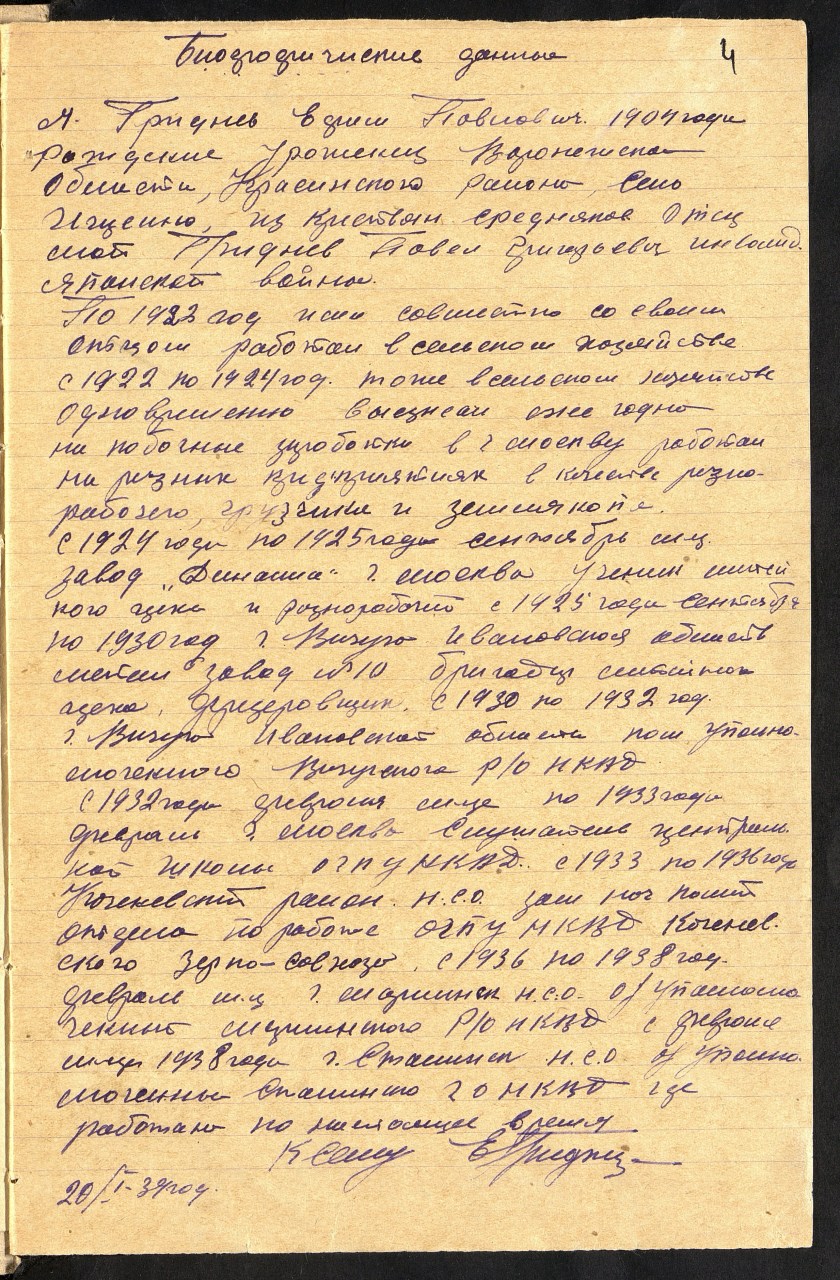 Биографические данные
4
Я. Гриднев Павлович. 1904 года
рождение Уроженец Воронежской
Области, района, Село
из крестьян середняков Отец
мой Гриднев Павел Григорьевич инвалид.
Японской войны.
По 1922 год мы совместно со своим
отцом работал в сельском хозяйстве
с 1922 по 1924 год. тоже в сельском хозяйстве
Одновременно выезжал еже годно
на побочные заработки в г москву работал
на разных предприятиях в качестве разно-
рабочего, грузчика и землякопа.
с 1924 года по 1925 года сентябрь м-ц.
завод „Динамо" г. москва Ученик литей
ного цеха и разнорабочий с 1925 года сентября
по 1930 год г. Вичуга Ивановская область
завод №10 бригадир литейного
цеха, с 1930 по 1932 год.
г. Вичуга Ивановской области пом уполно-
моченного Вичугского Р/О НКВД
с 1932 года февраля м-це по 1933 года
февраль г. москва Слушатель централь.
ной Школы ОГПУ НКВД. с 1933 по 1936 год
Коченевский район. Н.С.О. зам нач полит
отдела по работе ОГПУ НКВД Коченев.
ского зерно-совхоза, с 1936 по 1938 год.
февраль м-ц г. мариинск Н.С.О. О/Уполномо
ченный мариинского Р/О НКВД с февраля
м-ца 1938 года г. Сталинск Н.С.О О/Уполно.
моченный Сталинского Г О НКВД где
работаю по настоящее время
К сему ЕГриднев
20/I-39 год.